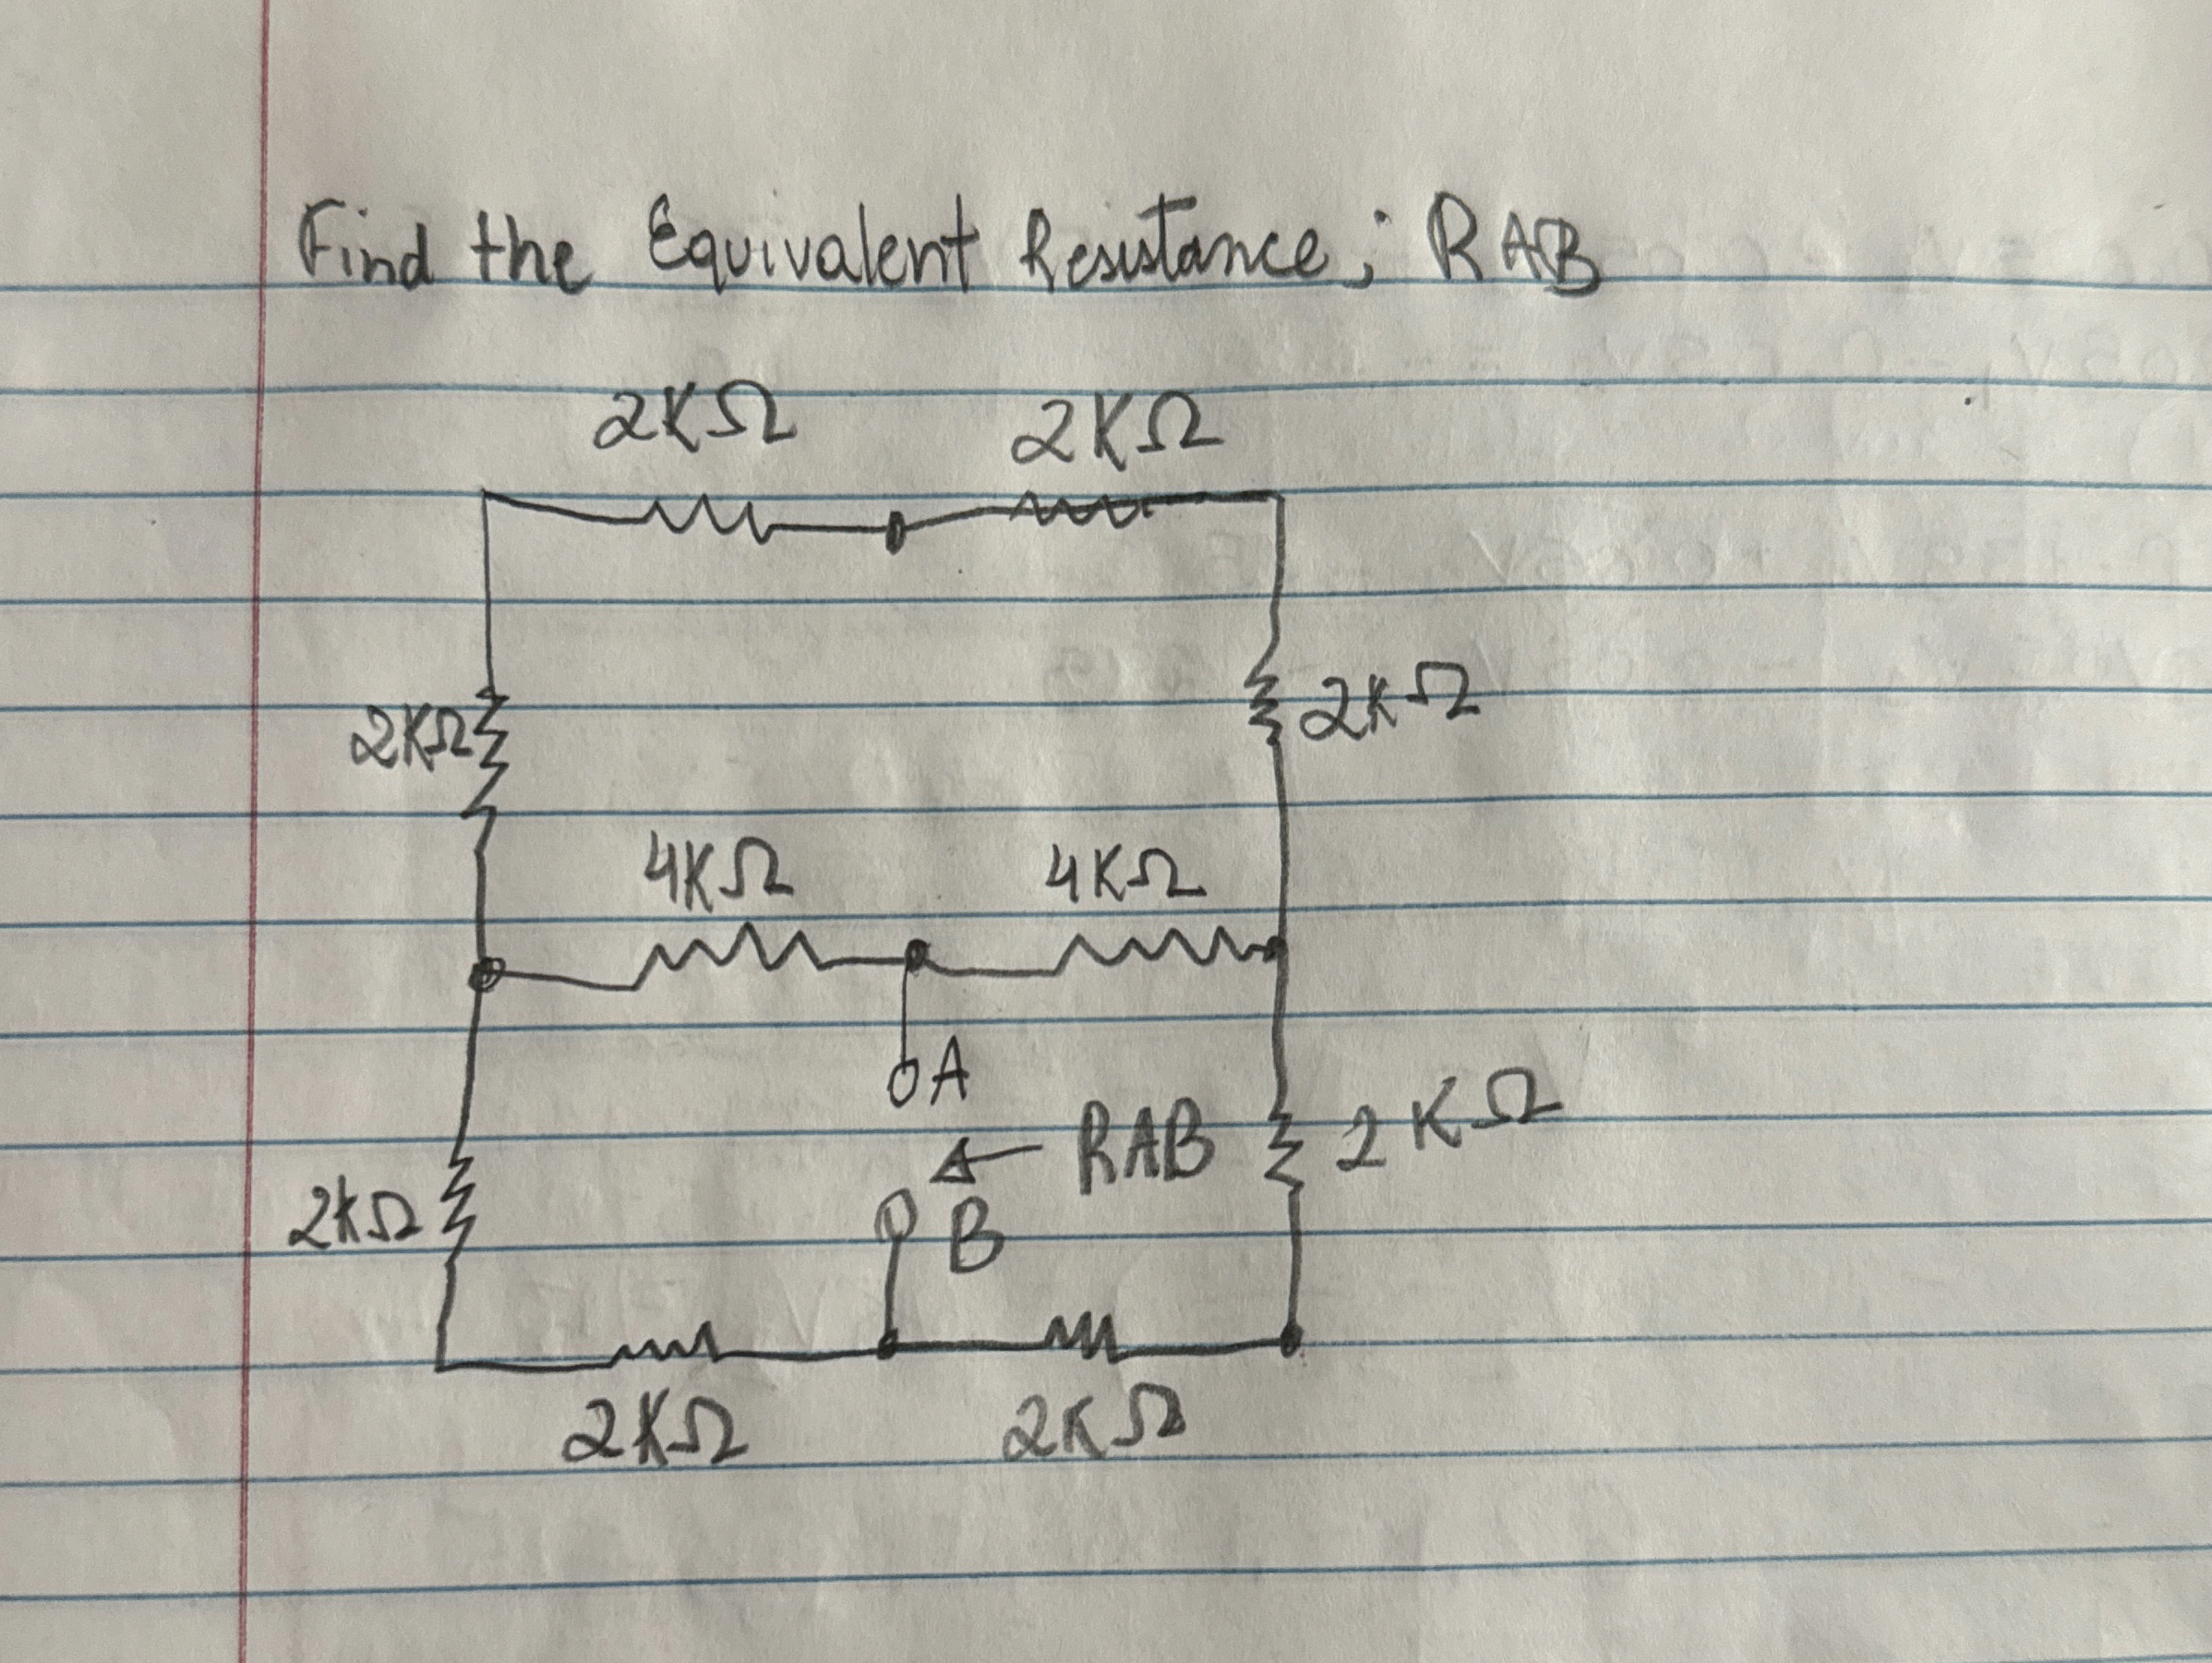 Find the Equivalent Resistance; RAB
2KΩ 2KΩ
2KΩ 2KΩ
4KΩ 4KΩ
A
RAB 2KΩ
2KΩ B
2KΩ 2KΩ